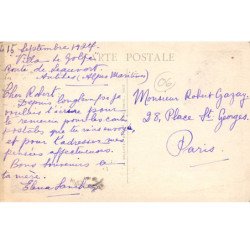 15 Septembre 1924
Villa le Golfe
Route de
Antibes (Alpes Maritimes)
CARTE POSTALE
Cher Robert,
Depuis longtemps je
voulais t'écrire pour
te remercier pour les cartes
postales que tu m'as envoyé
et pour t'adresser mes
pensées affectueuses.
Bons souvenirs à
ta mère.
Elena
06
Monsieur Robert Gazay
28, Place St Georges.
Paris.